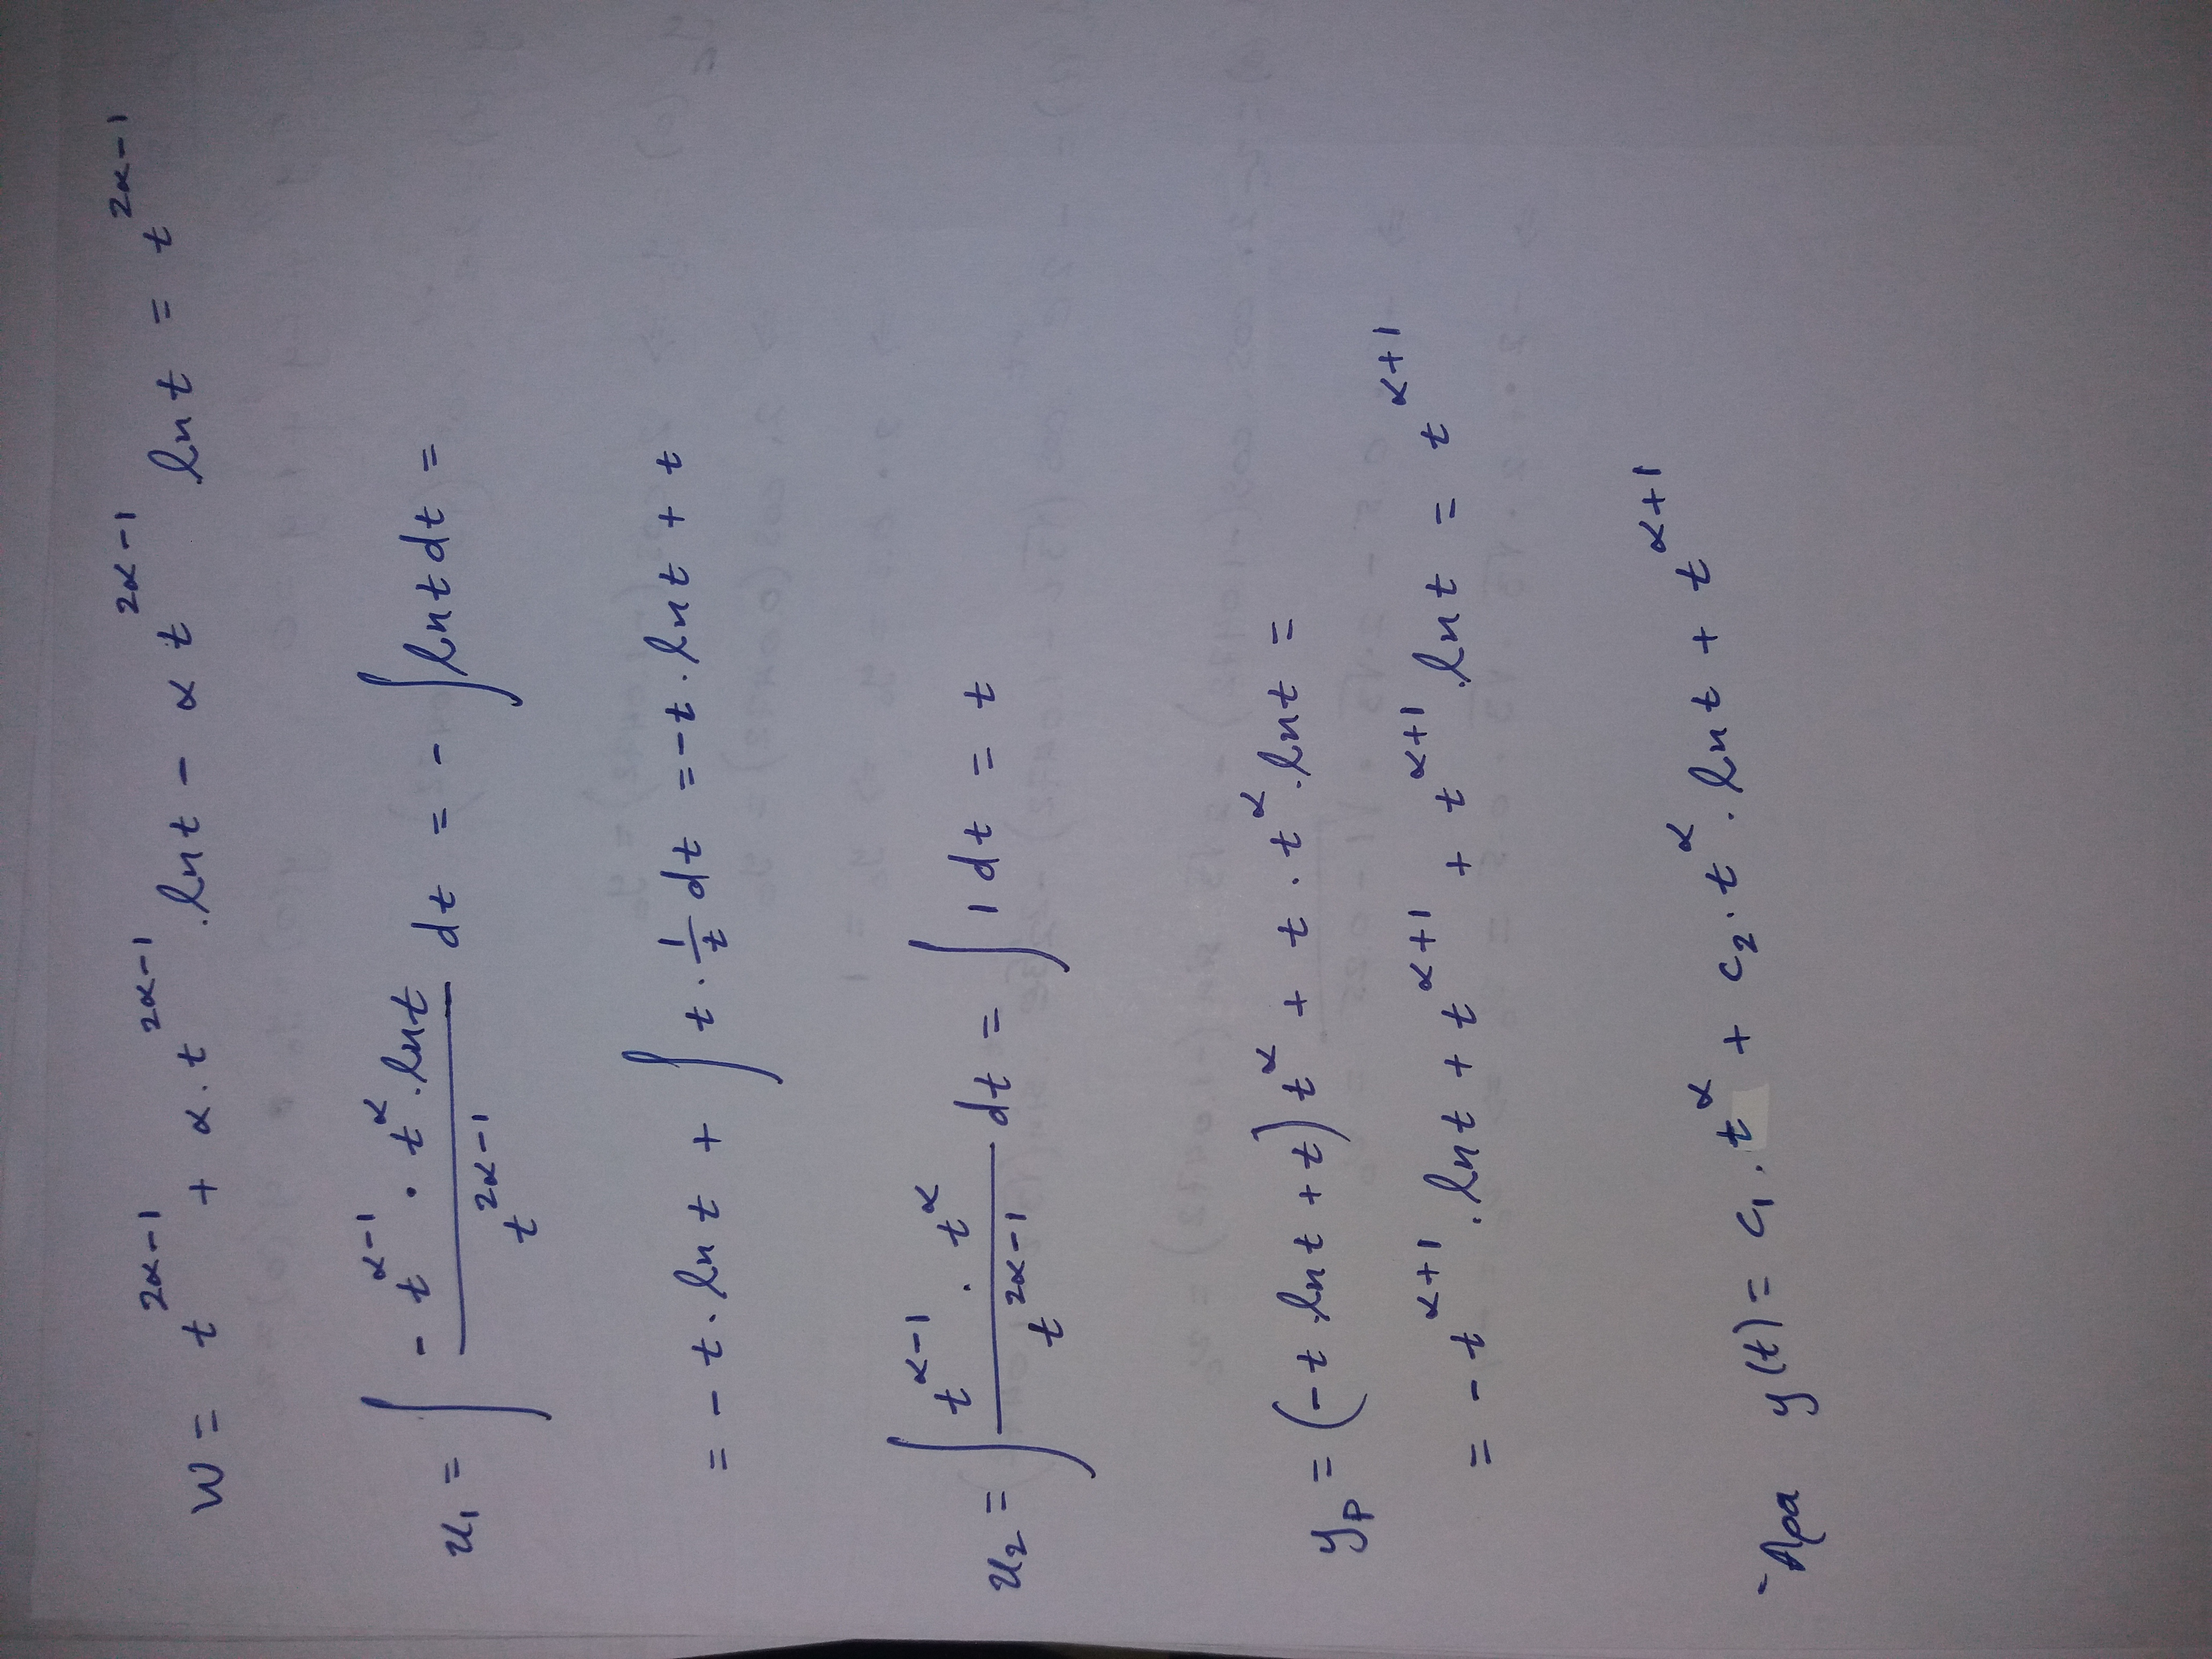 W = t^{2α-1} + α·t^{2α-1}·ln t - α t^{2α-1} ln t = t^{2α-1}
u₁ = ∫ \frac{-t^{α-1}·t^{α}·ln t}{t^{2α-1}} dt = -∫ ln t dt =
= -t·ln t + ∫ t·\frac{1}{t} dt = -t·ln t + t
u₂ = ∫ \frac{t^{α-1}·t^{α}}{t^{2α-1}} dt = ∫ 1 dt = t
y_P = (-t·ln t + t) t^{α} + t·t^{α}·ln t =
= -t^{α+1}·ln t + t^{α+1} + t^{α+1}·ln t = t^{α+1}
Άρα y(t) = c₁·t^{α} + c₂·t^{α}·ln t + t^{α+1}